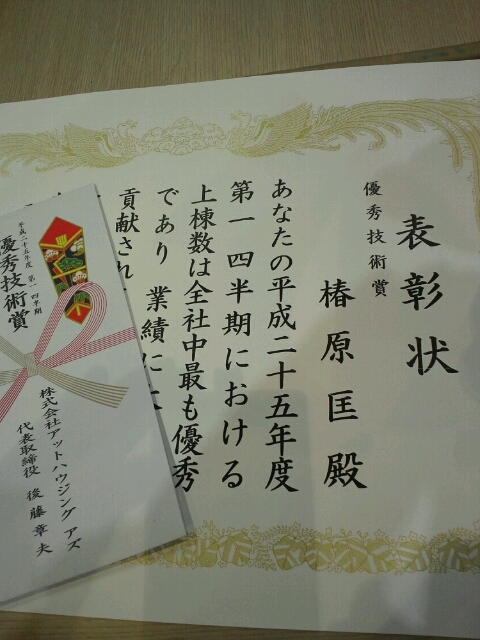 表彰状
優秀技術賞
椿原匡殿
あなたの平成二十五年度
第一四半期における
上棟数は全社中最も優秀
であり 業績に
貢献され
平成二十五年度 第一四半期
優秀技術賞
株式会社アットハウジング アズ
代表取締役 後藤章夫